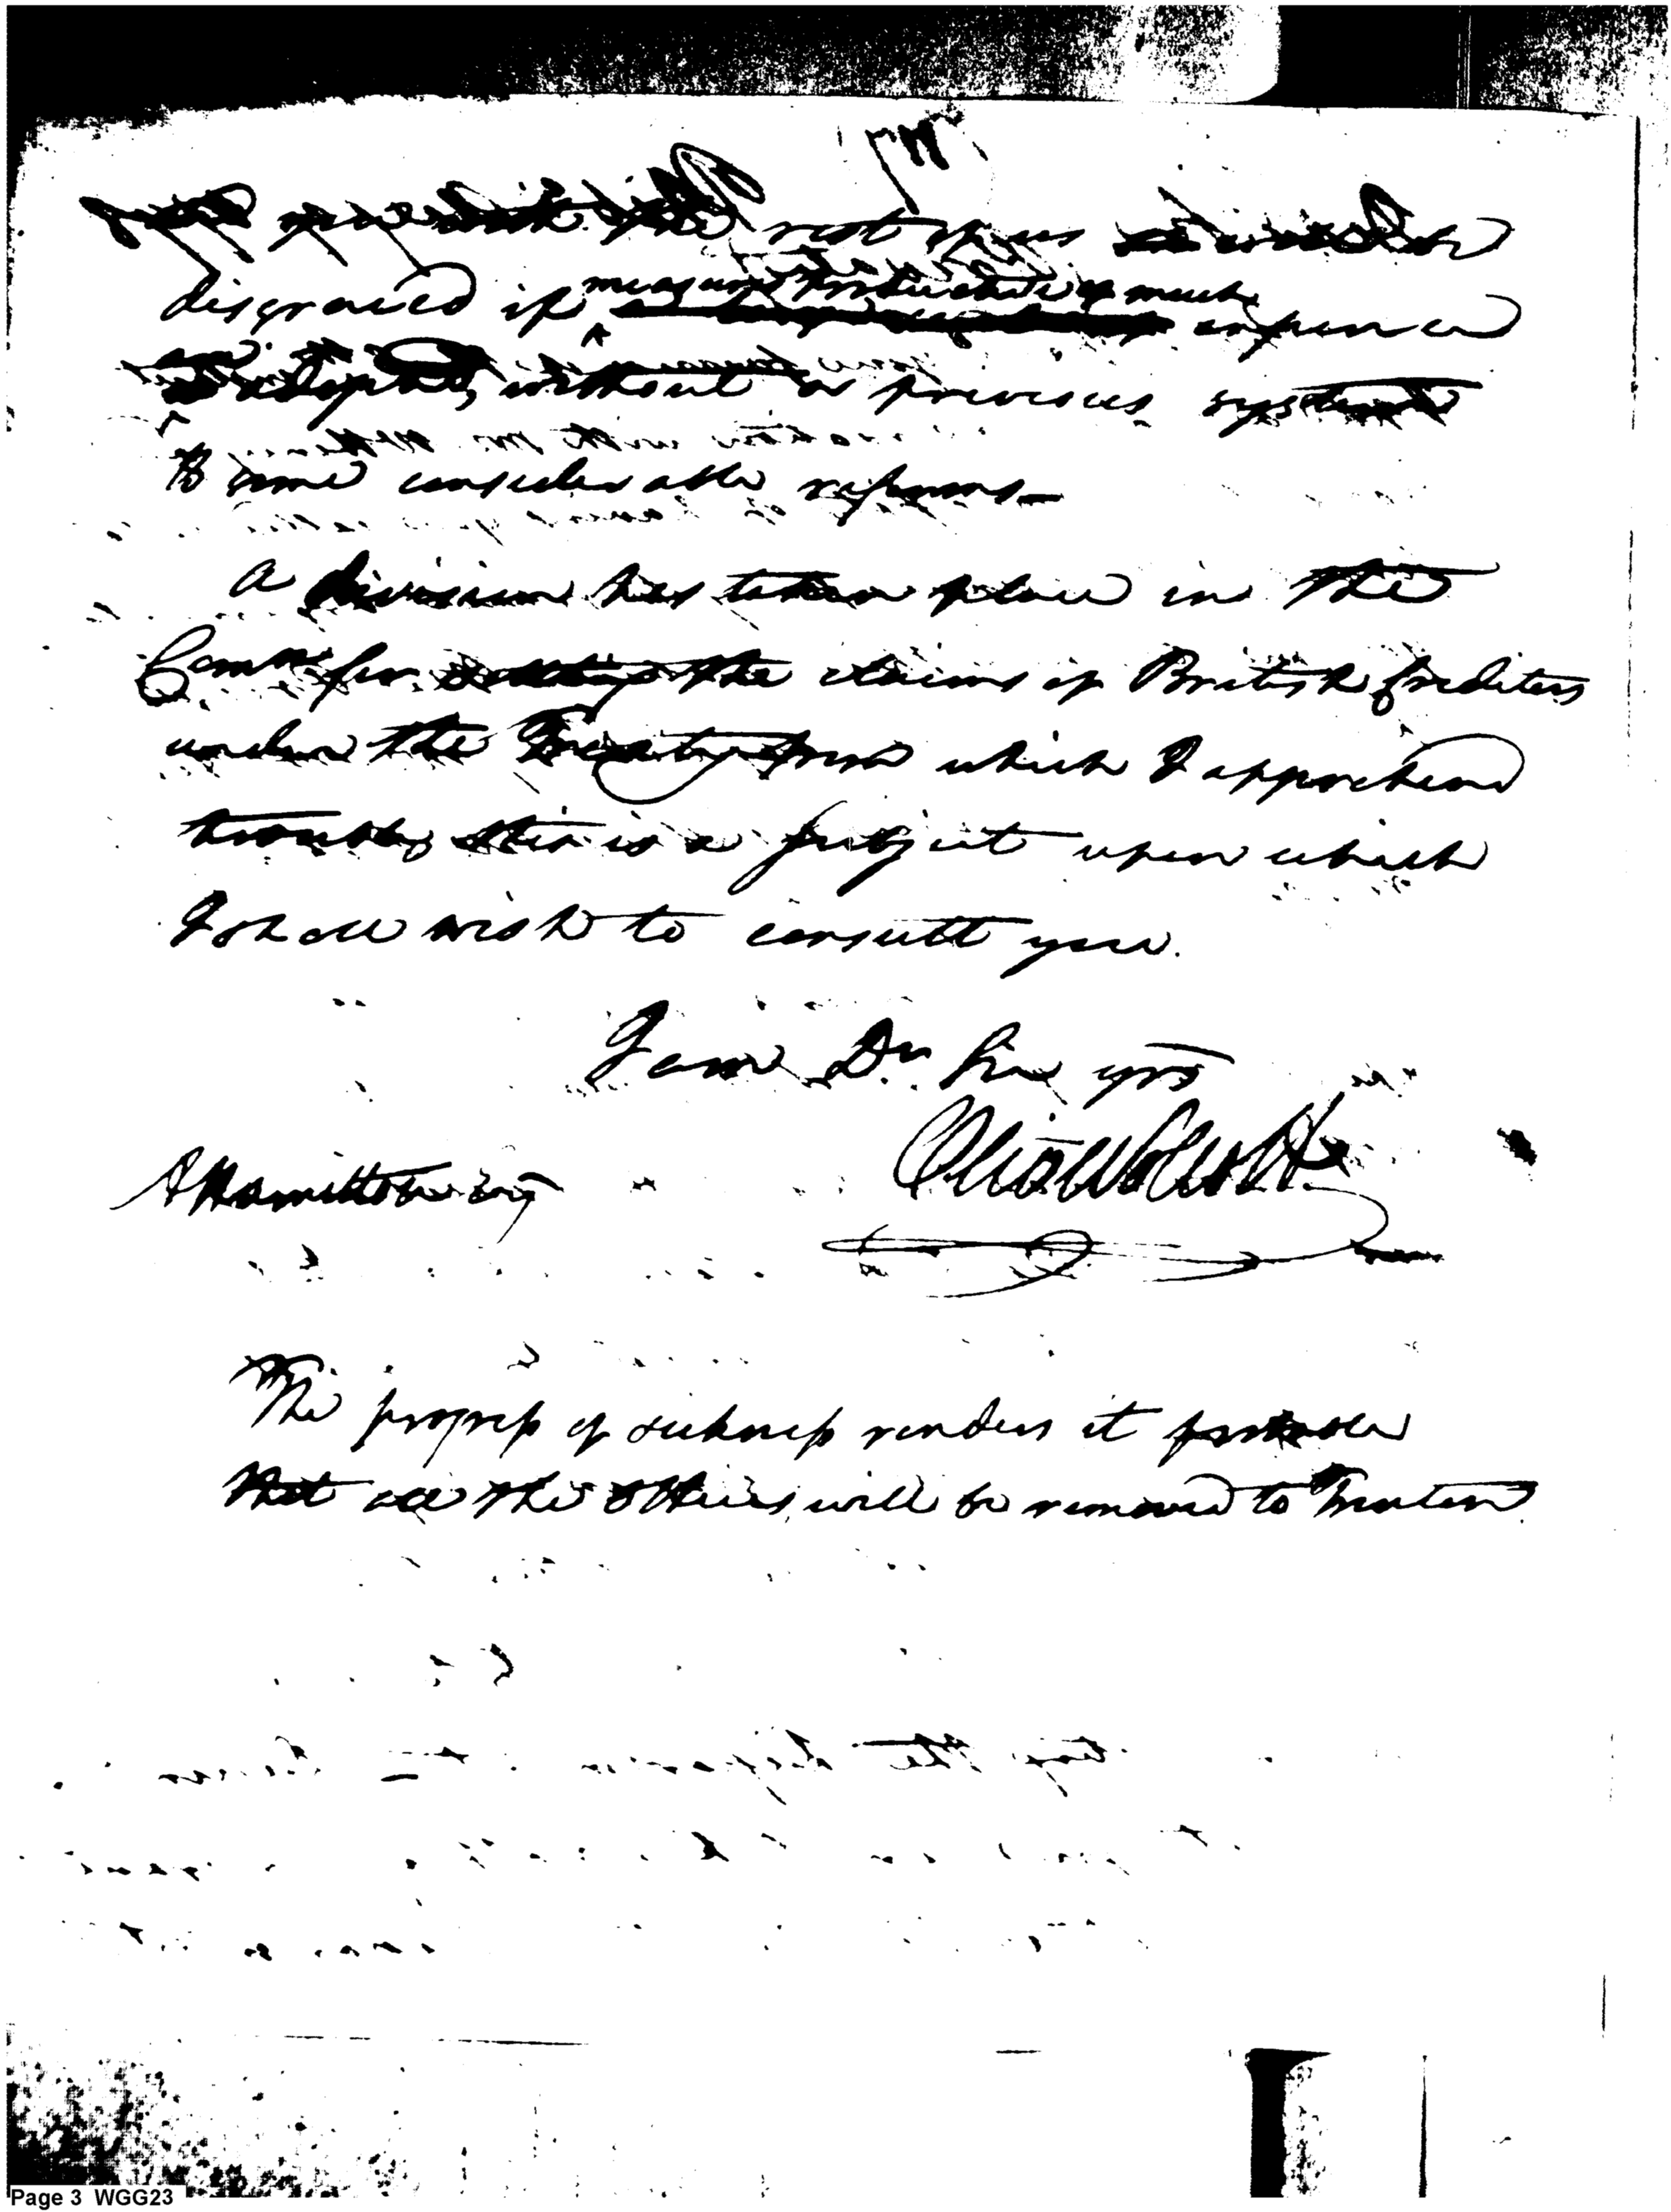 rest of us
disgraced if measures productive of much expence
adopted, without a previous system
& some considerable reforms—
A division has taken place in the
Commrs for settling the claims of British Creditors
under the Treaty from which I apprehend
trouble, this is a subject upon which
I shall wish to consult you.
I am Dr Sir yrs
Oliv Wolcott
A Hamilton Esq
The progress of sickness renders it probable
that all the Offices will be removed to Trenton.
Page 3 WGG23